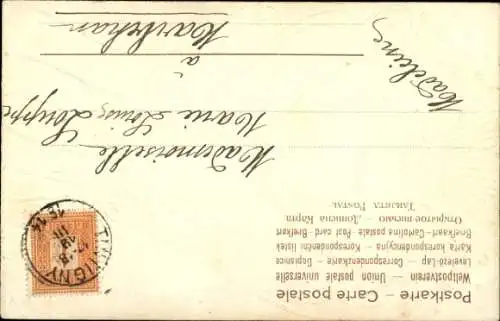 Postkarte – Carte postale
Weltpostverein — Union postale universelle
Levelező-Lap — Correspondenzkarte — Dopisnice
Karta korrespondencyjna — Korespondenční lístek
Brefkaart Cartolina postale Post card Brefkort
Открытое письмо — Дописна Карта
Tarjeta Postal
Mademoiselle
Marie Louise
à
Madeleine
TINTIGNY